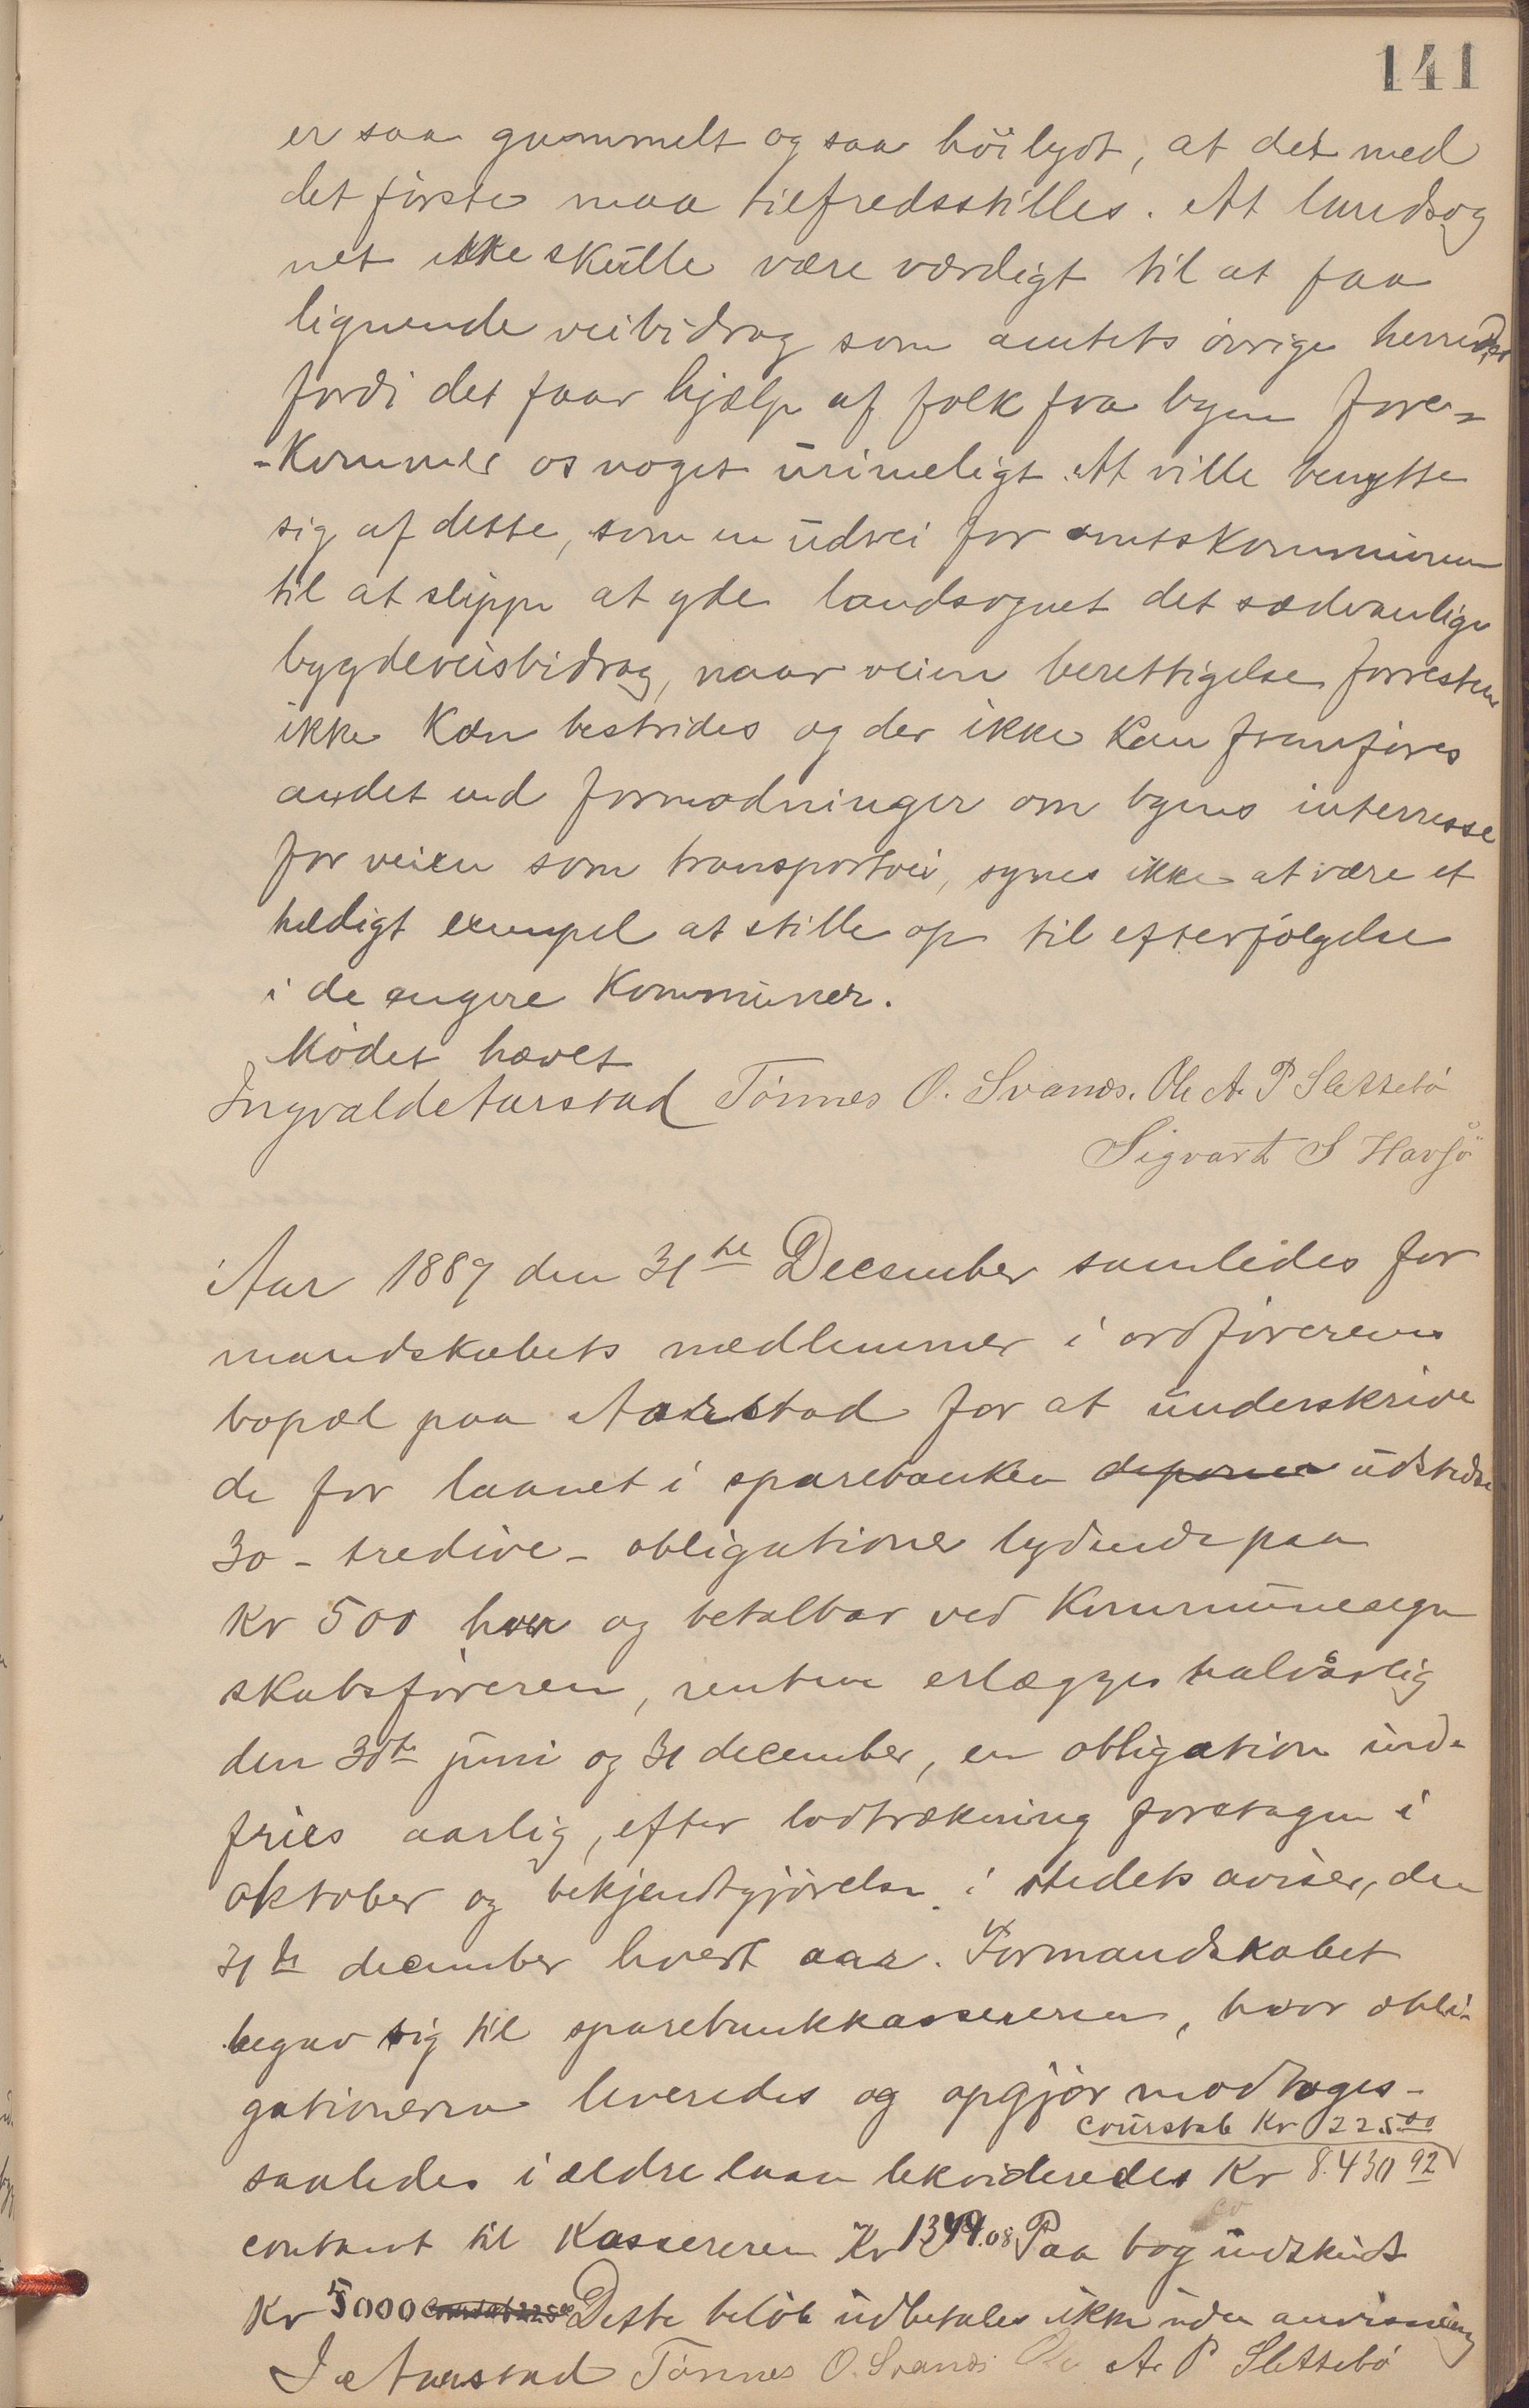 141
er saa gammelt og saa höilydt, at det med
det förste maa tilfredsstilles. At landsog
net ikke skulle være værdigt til at faa
lignende veibidrag som amtets övrige herreder
fordi det faar hjælp af folk fra byen fore-
-kommer os noget urimeligt. At ville benytte
sig af dette, som en udvei for amtskommunen
til at slippe at yde landsognet det sædvanlige
bygdeveisbidrag, naar veiens berettigelse forresten
ikke kan bestrides og der ikke kan fremföres
andet end formodninger om byens interresse
for veien som transportvei, synes ikke at være et
heldigt exempel at stille op til efterfölgelse
i de engere Kommuner.
Mödet hævet
Ingvald Aarstad Tönnes O. Svanes. Ole A. P Slettebö
Sigvart S Havsö
Aar 1889 den 31te December samledes for
mandskabets medlemmer i ordförerens
bopæl paa Aarstad for at underskrive
de for laanet i sparebanken deponer udstedte
30 - tredive - obligationer lydende paa
Kr 500 hver og betalbar ved Kommuneregn
skabsföreren, renten erlægges halvårlig
den 30te juni og 31 december, en obligation ind-
fries aarlig, efter lodtrækning foretagen i
oktober og bekjendtgjörelse i stedets aviser, den
31te december hvert aar. Formandskabet
begav sig til sparebankkassereren, hvor obli-
gationerne leveredes og opgjör modtoges -
courstab Kr 225 00
saaledes i ældre laan lekvideredes Kr 8.430 92
contant til Kassereren Kr 1344.08 Paa bog indskudt
Kr 5000 courstab 225 00 Dette belöb udbetales ikke uden anvisning
I Aarstad Tönnes O. Svanes Ole A. P Slettebö